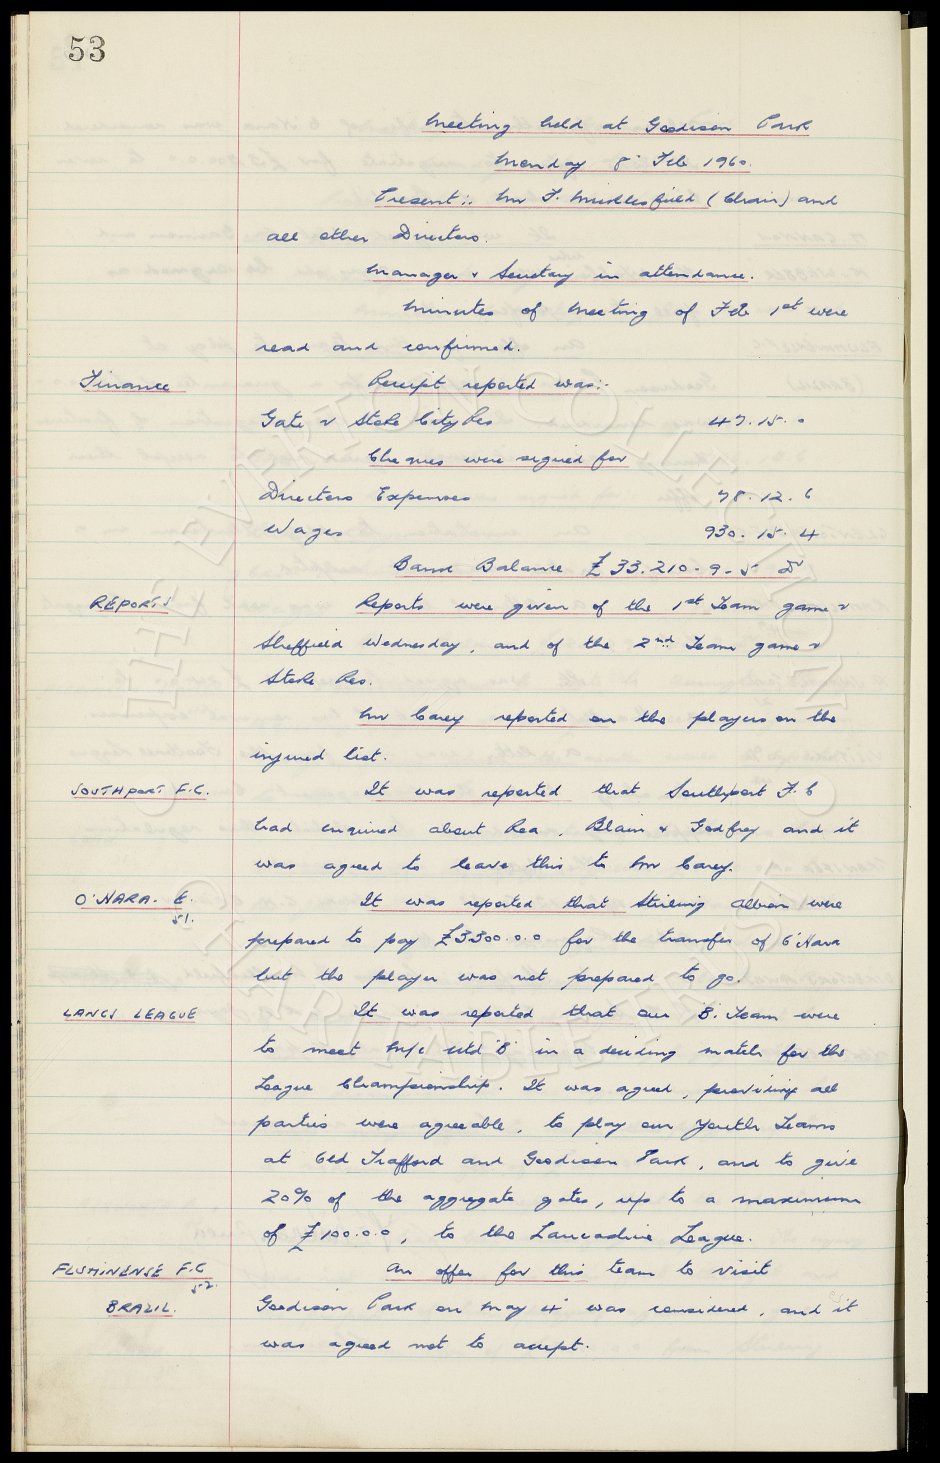 53
Meeting held at Goodison Park
Monday 8th Feb 1960.
Present:. Mr F. Micklesfield (Chair) and
all other Directors.
Manager & Secretary in attendance.
Minutes of Meeting of Feb 1st were
read and confirmed.
Finance Receipt reported was:-
Gate v Stoke City Res 47.15.0
Cheques were signed for
Directors Expenses 78.12.6
Wages 930.15.4
Bank Balance £33.210-9-5 Dr
REPORTS Reports were given of the 1st Team game v
Sheffield Wednesday, and of the 2nd Team game v
Stoke Res.
Mr Carey reported on the players on the
injured list.
SOUTHPORT F.C. It was reported that Southport F.C
had enquired about Rea, Blain & Godfrey and it
was agreed to leave this to Mr Carey.
O'HARA. E. It was reported that Stirling Albion were
51.
prepared to pay £3300.0.0 for the transfer of O'Hara
but the player was not prepared to go.
LANCS LEAGUE It was reported that our 'B' Team were
to meet M/c Utd 'B' in a deciding match for the
League Championship. It was agreed, providing all
parties were agreeable, to play our Youth Teams
at Old Trafford and Goodison Park, and to give
20% of the aggregate gates, up to a maximum
of £100.0.0, to the Lancashire League.
FLUMINENSE F.C An offer for this team to visit
52.
BRAZIL. Goodison Park on May 4th was considered, and it
was agreed not to accept.
THE EVERTON COLLECTION
CHARITABLE TRUST